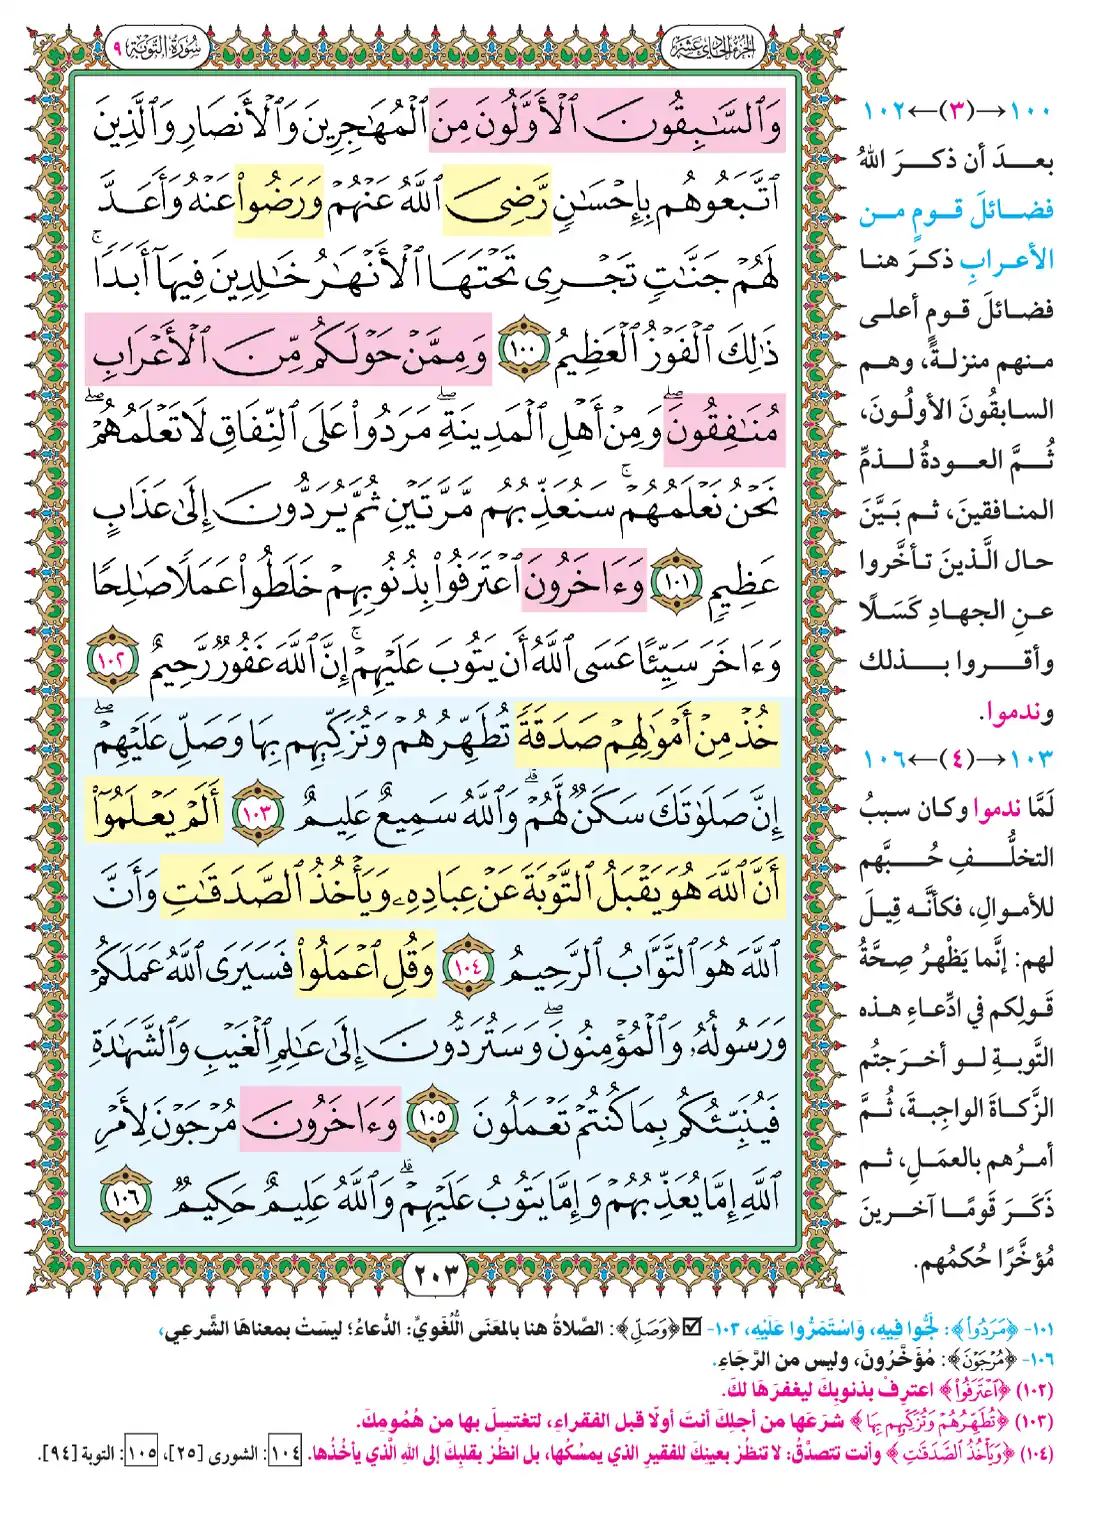 الجزء الحادي عشر
سورة التوبة ٩
وَٱلسَّٰبِقُونَ ٱلْأَوَّلُونَ مِنَ ٱلْمُهَٰجِرِينَ وَٱلْأَنصَارِ وَٱلَّذِينَ
ٱتَّبَعُوهُم بِإِحْسَٰنٍ رَّضِىَ ٱللَّهُ عَنْهُمْ وَرَضُوا۟ عَنْهُ وَأَعَدَّ
لَهُمْ جَنَّٰتٍ تَجْرِى تَحْتَهَا ٱلْأَنْهَٰرُ خَٰلِدِينَ فِيهَآ أَبَدًا ۚ
ذَٰلِكَ ٱلْفَوْزُ ٱلْعَظِيمُ ١٠٠ وَمِمَّنْ حَوْلَكُم مِّنَ ٱلْأَعْرَابِ
مُنَٰفِقُونَ ۖ وَمِنْ أَهْلِ ٱلْمَدِينَةِ ۖ مَرَدُوا۟ عَلَى ٱلنِّفَاقِ لَا تَعْلَمُهُمْ ۖ
نَحْنُ نَعْلَمُهُمْ ۚ سَنُعَذِّبُهُم مَّرَّتَيْنِ ثُمَّ يُرَدُّونَ إِلَىٰ عَذَابٍ
عَظِيمٍ ١٠١ وَءَاخَرُونَ ٱعْتَرَفُوا۟ بِذُنُوبِهِمْ خَلَطُوا۟ عَمَلًا صَٰلِحًا
وَءَاخَرَ سَيِّئًا عَسَى ٱللَّهُ أَن يَتُوبَ عَلَيْهِمْ ۚ إِنَّ ٱللَّهَ غَفُورٌ رَّحِيمٌ ١٠٢
خُذْ مِنْ أَمْوَٰلِهِمْ صَدَقَةً تُطَهِّرُهُمْ وَتُزَكِّيهِم بِهَا وَصَلِّ عَلَيْهِمْ ۖ
إِنَّ صَلَوٰتَكَ سَكَنٌ لَّهُمْ ۗ وَٱللَّهُ سَمِيعٌ عَلِيمٌ ١٠٣ أَلَمْ يَعْلَمُوٓا۟
أَنَّ ٱللَّهَ هُوَ يَقْبَلُ ٱلتَّوْبَةَ عَنْ عِبَادِهِۦ وَيَأْخُذُ ٱلصَّدَقَٰتِ وَأَنَّ
ٱللَّهَ هُوَ ٱلتَّوَّابُ ٱلرَّحِيمُ ١٠٤ وَقُلِ ٱعْمَلُوا۟ فَسَيَرَى ٱللَّهُ عَمَلَكُمْ
وَرَسُولُهُۥ وَٱلْمُؤْمِنُونَ ۖ وَسَتُرَدُّونَ إِلَىٰ عَٰلِمِ ٱلْغَيْبِ وَٱلشَّهَٰدَةِ
فَيُنَبِّئُكُم بِمَا كُنتُمْ تَعْمَلُونَ ١٠٥ وَءَاخَرُونَ مُرْجَوْنَ لِأَمْرِ
ٱللَّهِ إِمَّا يُعَذِّبُهُمْ وَإِمَّا يَتُوبُ عَلَيْهِمْ ۗ وَٱللَّهُ عَلِيمٌ حَكِيمٌ ١٠٦
٢٠٣
١٠٠→(٣)←١٠٢
بعدَ أن ذكرَ اللهُ
فضائلَ قومٍ من
الأعرابِ ذكرَ هنا
فضائلَ قومٍ أعلى
منهم منزلةً، وهم
السابقُونَ الأولُونَ،
ثُمَّ العودةُ لذمِّ
المنافقينَ، ثم بَيَّنَ
حال الَّذينَ تأخَّروا
عنِ الجهادِ كَسَلًا
وأقروا بذلك
وندموا.
١٠٣→(٤)←١٠٦
لَمَّا ندموا وكان سببُ
التخلُّفِ حُبَّهم
للأموالِ، فكأنَّه قِيلَ
لهم: إنَّما يَظْهرُ صِحَّةُ
قَولِكم في ادِّعاءِ هذه
التَّوبةِ لو أخرَجتُم
الزَّكاةَ الواجِبةَ، ثُمَّ
أمرُهم بالعمَلِ، ثم
ذَكَرَ قَومًا آخرينَ
مُؤخَّرًا حُكمُهم.
١٠١- ﴿مَرَدُوا۟﴾: لَجُّوا فِيهِ، وَاسْتَمَرُّوا عَلَيْهِ، ١٠٣- ☑ ﴿وَصَلِّ﴾: الصَّلاةُ هنا بالمَعْنَى اللُّغَويِّ: الدُّعاءُ؛ ليسَتْ بمعناهَا الشَّرعِي،
١٠٦- ﴿مُرْجَوْنَ﴾: مُؤَخَّرُونَ، وليس من الرَّجَاءِ.
(١٠٢) ﴿ٱعْتَرَفُوا۟﴾ اعترِفْ بذنوبِكَ ليغفرَهَا لكَ.
(١٠٣) ﴿تُطَهِّرُهُمْ وَتُزَكِّيهِم بِهَا﴾ شرَعَها من أجلِكَ أنتَ أولًا قبل الفقراءِ، لتغتسِلَ بها من هُمُومِكَ.
(١٠٤) ﴿وَيَأْخُذُ ٱلصَّدَقَٰتِ﴾ وأنت تتصدَّقُ: لا تنظُرْ بعينِكَ للفقيرِ الذي يمسْكُها، بل انظُرْ بقلبِكَ إلى اللهِ الَّذي يأخُذُها. ١٠٤: الشورى [٢٥]، ١٠٥: التوبة [٩٤].